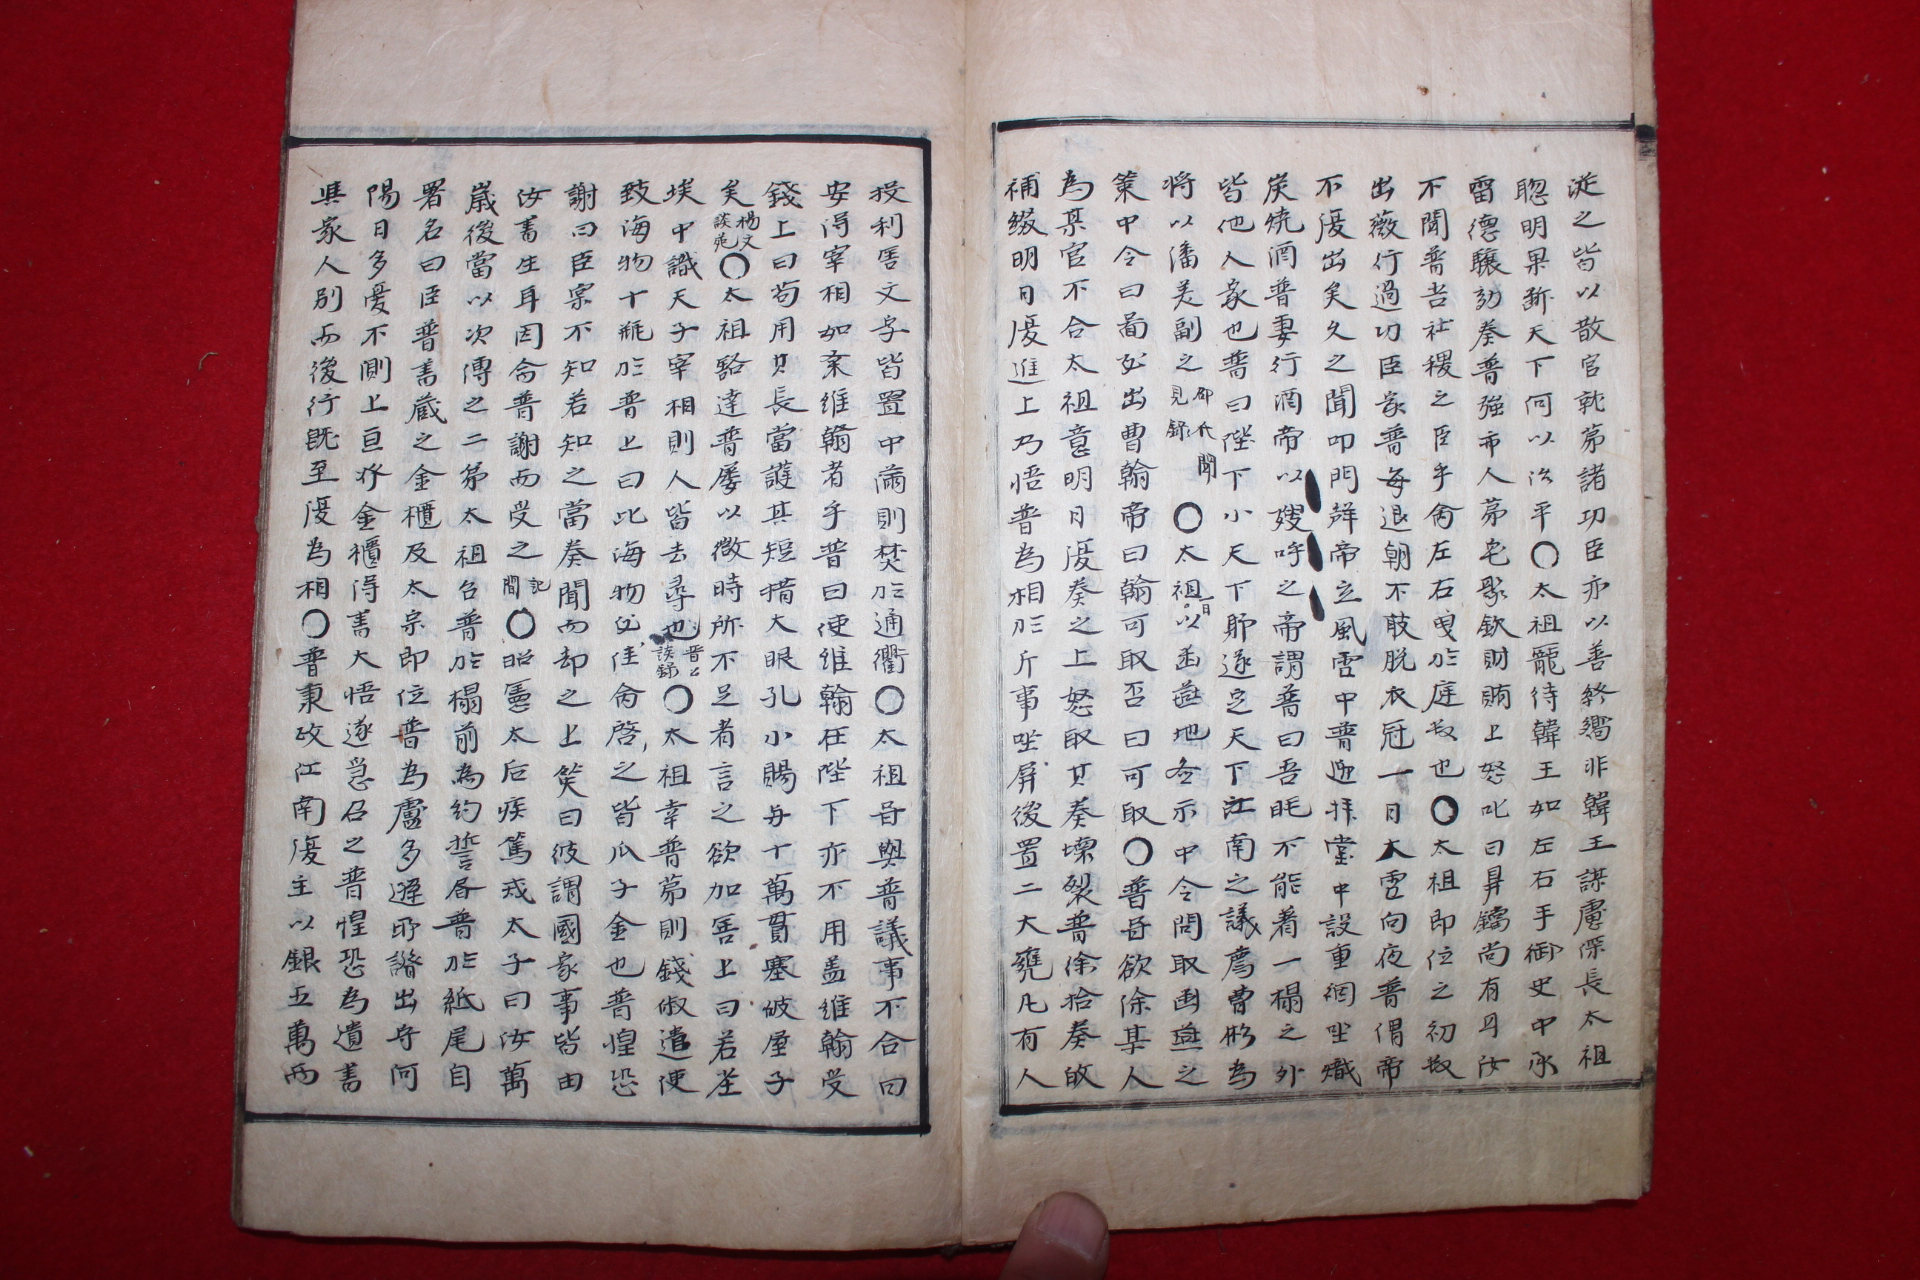 從之皆以散官就第諸功臣亦以善終嚮非韓王謀慮深長太祖
聰明果斷天下何以治平○太祖寵待韓王如左右手御史中丞
雷德驤劾奏普強市人第宅聚斂財賄上怒叱曰鼎鐺尚有耳汝
不聞普吾社稷之臣乎命左右曳於庭数也○太祖即位之初数
出薇行過功臣家普每退朝不敢脫衣冠一日大雪向夜普謂帝
不復出矣久之聞叩門聲帝立風雪中普迎拜堂中設重裀坐熾
炭燒酒普妻行酒帝以嫂呼之帝謂普曰吾眊不能着一榻之外
皆他人家也普曰陛下小天下耶遂定天下江南之議薦曹彬為
將以潘美副之邵氏聞見錄○太祖一日以幽燕地啚示中令問取幽燕之
策中令曰啚必出曹翰帝曰翰可取否曰可取○普甞欲除某人
為某官不合太祖意明日復奏之上怒取其奏壞裂普徐拾奏故
補綴明日復進上乃悟普為相於斤事坐屏後置二大甕凡有人
投利害文字皆置中滿則焚於通衢○太祖甞與普議事不合曰
安得宰相如桑維翰者乎普曰使維翰在陛下亦不用盖維翰受
錢上曰苟用其長當護其短措大眼孔小賜与十萬貫塞破屋子
矣楊文談苑○太祖豁達普屢以微時所不足者言之欲加害上曰若茔
埃中識天子宰相則人皆去尋也晋公談錄○太祖幸普第則錢俶遣使
致海物十瓶於普上曰此海物必佳命啓之皆瓜子金也普惶恐
謝曰臣宲不知若知之當奏聞而却之上笑曰彼謂國家事皆由
汝書生耳因命普謝而受之記聞○昭憲太后疾篤戒太子曰汝萬
歲後當以次傳之二弟太祖召普於榻前為約誓昏普於紙尾自
署名曰臣普書藏之金櫃及太宗即位普為盧多遜所譖出守河
陽日多憂不測上亘於金櫃得書大悟遂急召之普惶恐為遺書
與家人別而後行旣至復為相○普秉政江南復主以銀五萬兩